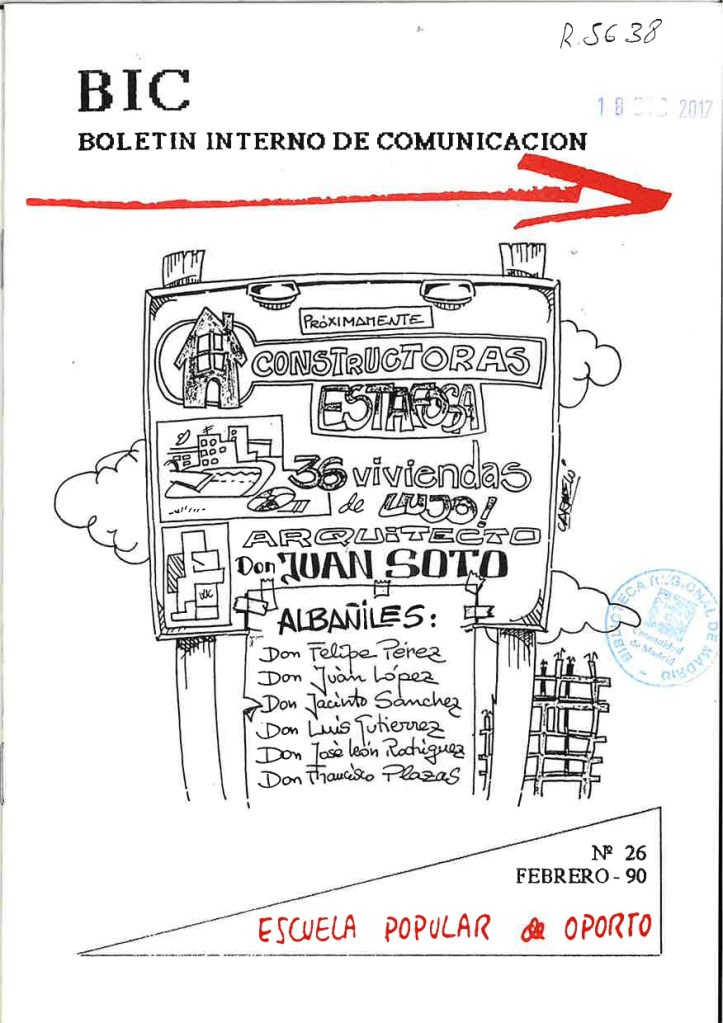 R.5638
BIC
18 DIC 2017
BOLETIN INTERNO DE COMUNICACION
PRÓXIMAMENTE
CONSTRUCTORAS
ESTAFOSA
36 viviendas
de LUJO!
ARQUITECTO
Don JUAN SOTO
ALBAÑILES:
Don Felipe Pérez
Don Juan López
Don Jacinto Sánchez
Don Luis Gutierrez
Don José León Rodríguez
Don Francisco Plazas
BIBLIOTECA REGIONAL DE MADRID
Comunidad
de Madrid
Nº 26
FEBRERO - 90
ESCUELA POPULAR de OPORTO